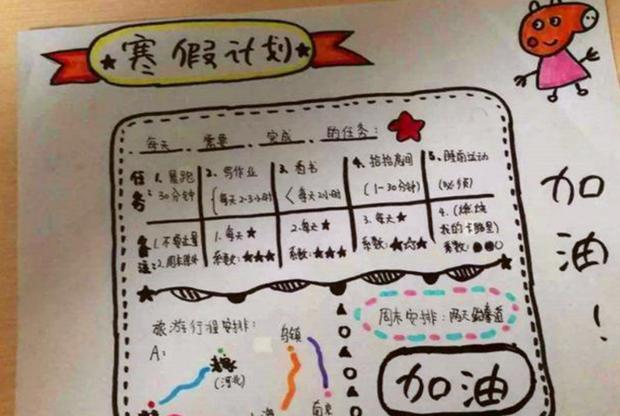 寒假计划
每天 需要 完成 的任务:
任务: 1. 晨跑 30分钟
2. 写作业 (每天2-3小时)
3. 看书 (每天2小时)
4. 拍拍房间 (1-30分钟)
5. 睡前运动 (必须)
备注: 1. 不要过量 2. 周末除外
1. 每天★ 系数:★★★
2. 每天★ 系数:★★★
3. 每天★ 系数:★☆☆
4. (燃烧我的卡路里) 系数:●●○
旅游行程安排:
周末安排:
A:
乌镇
(河北)
上海
南京
加油
加油!